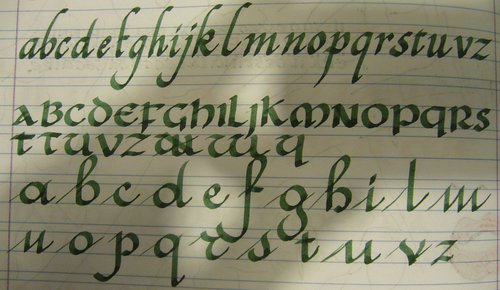 abcdefghijklmnopqrstuvz
aBCDEFGHILJKMNOPQRS
ttuvz
a b c d e f g h i l m
n o p q r s t u v z